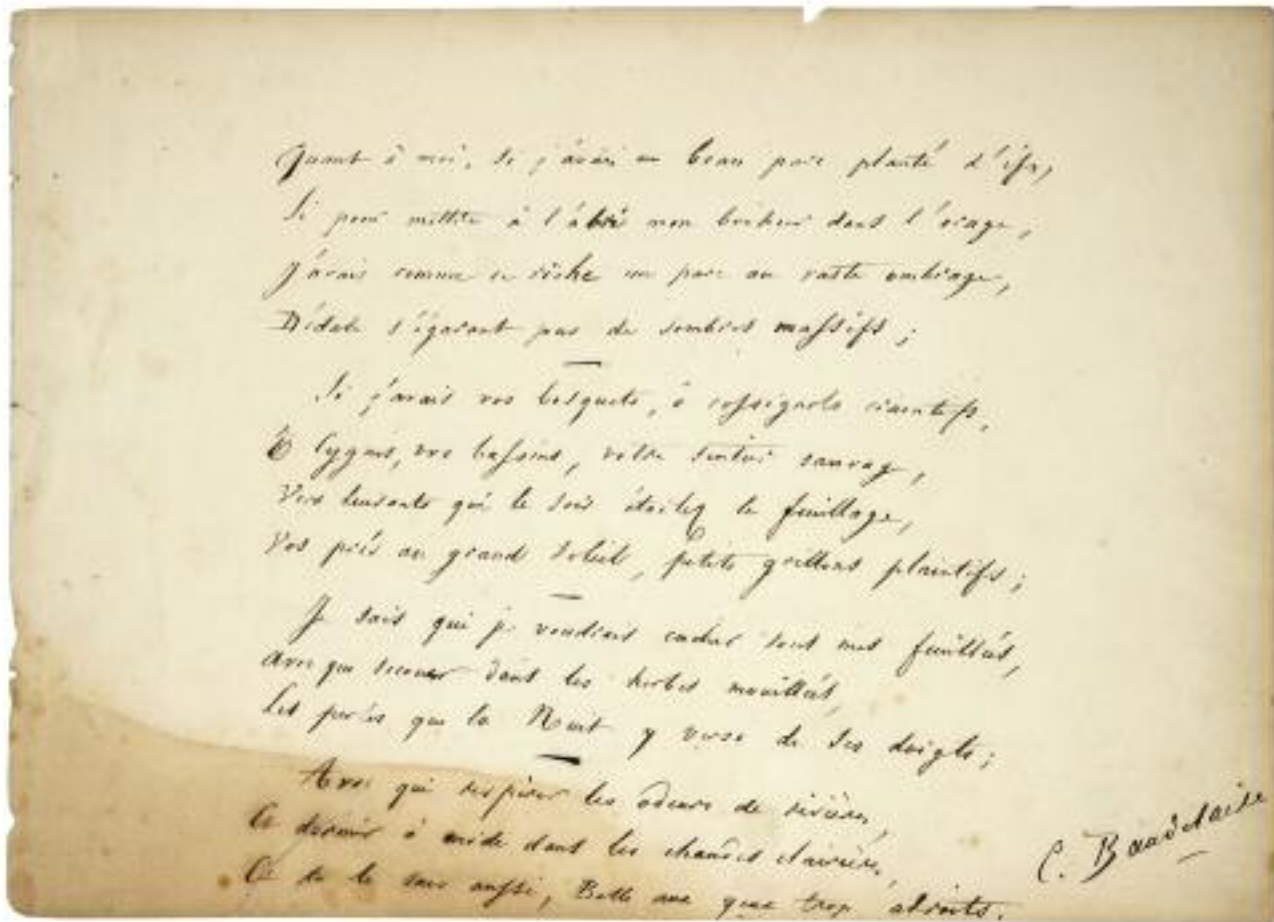 Quant à moi, si j'avais un beau parc planté d'ifs,
Si pour mettre à l'abri mon bonheur dans l'orage,
J'avais comme ce riche un parc au vaste ombrage,
Dédale s'égarant de sombres massifs ;
Si j'avais vos bosquets, ô rossignols craintifs,
O Cygnes, vos bassins, votre sentier sauvage,
Vers luisants qui le soir étoilez le feuillage,
Vos prés au grand soleil, petits grillons plaintifs ;
Je sais qui je voudrais cacher sous mes feuillées,
Avec qui secouer dans les herbes mouillées,
Les perles que la Nuit y verse de ses doigts ;
Avec qui respirer les odeurs de rivières,
dormir à midi dans les chaudes clairières,
tu le sais aussi, Belle aux yeux trop adroits.
C. Baudelaire